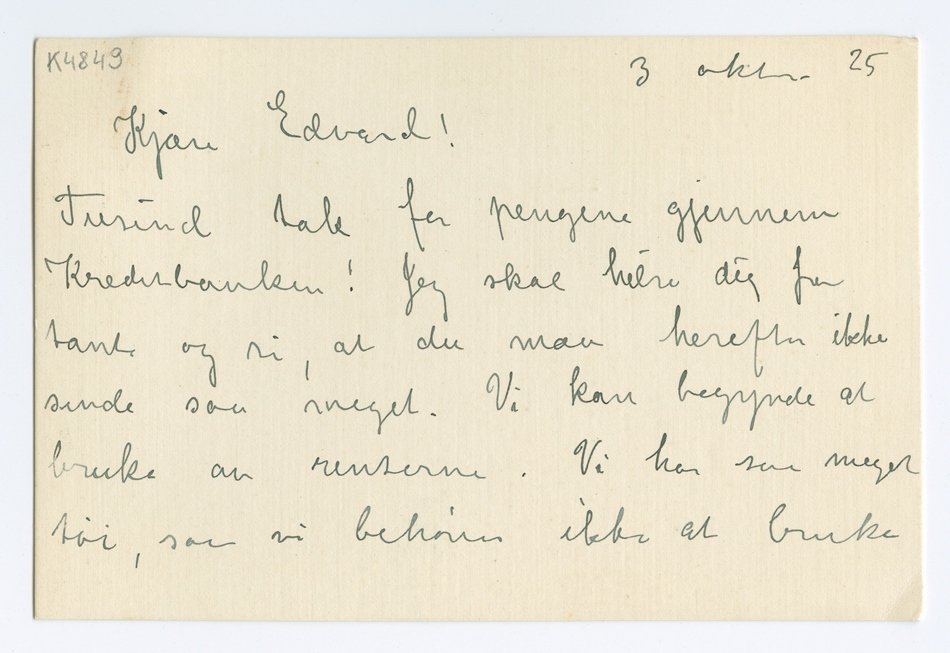 K4849
3 oktbr. 25
Kjære Edvard!
Tusind tak for pengene gjennem
Kreditbanken! Jeg skal hilse dig fra
tante og si, at du maa herefter ikke
sende saa meget. Vi kan begynde at
bruke av renterne. Vi har saa meget
töi, saa vi behöver ikke at bruke